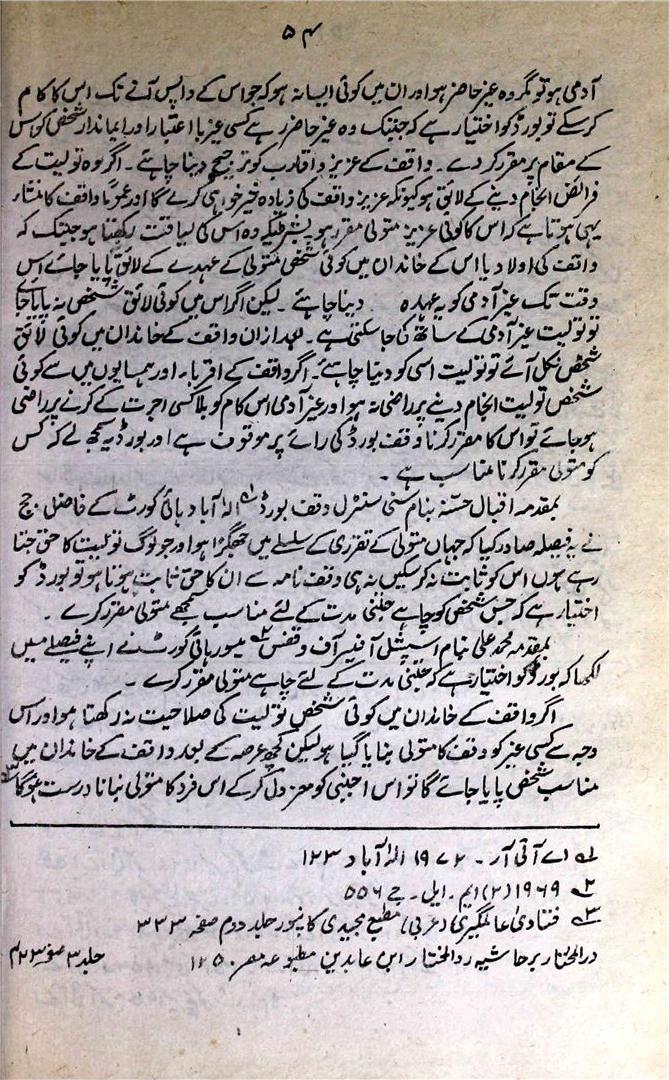 ۵۴
آدمی ہو تو مگر وہ غیر حاضر ہو اور ان میں کوئی ایسا نہ ہو کہ جو اس کے واپس آنے تک اس کا کام
کر سکے تو بورڈ کو اختیار ہے کہ جبتک وہ غیر حاضر رہے کسی غیر با اعتبار اور ایماندار شخص کو اس
کے مقام پر مقرر کر دے۔ واقف کے عزیز و اقارب کو ترجیح دینا چاہئے۔ اگر وہ تولیت کے
فرائض انجام دینے کے لایق ہو کیونکہ عزیز واقف کی زیادہ خیر خواہی کرے گا اور عموماً واقف کا منشار
یہی ہوتا ہے کہ اس کا کوئی عزیز متولی مقرر ہو بشرطیکہ وہ اس کی لیاقت رکھتا ہو جبتک کہ
واقف کی اولاد یا اس کے خاندان میں کوئی شخص متولی کے عہدے کے لائق پایا جائے اس
وقت تک غیر آدمی کو یہ عہدہ دینا چاہئے۔ لیکن اگر اس میں کوئی لائق شخص نہ پایا جائے
تو تولیت غیر آدمی کے ساتھ کی جا سکتی ہے۔ بعد ازان واقف کے خاندان میں کوئی لائق
شخص نکل آئے تو تولیت اسی کو دینا چاہئے۔ اگر واقف کے اقرباء اور ہمسایوں میں سے کوئی
شخص تولیت انجام دینے پر راضی نہ ہو اور غیر آدمی اس کام کو بلا کسی اجرت کے کرنے پر راضی
ہو جائے تو اس کا مقرر کرنا وقف بورڈ کی رائے پر موقوف ہے اور بورڈ یہ سمجھ لے کہ کس
کو متولی مقرر کرنا مناسب ہے۔
بمقدمہ اقبال حسنہ بنام سنی سنٹرل وقف بورڈ ؎۱ الہٰ آباد ہائی کورٹ کے فاضل جج
نے یہ فیصلہ صادر کیا کہ جہاں متولی کے تقرری کے سلسلے میں جھگڑا ہو اور جو لوگ تولیت کا حق جتا
رہے ہوں اس کو ثابت نہ کر سکیں نہ ہی وقف نامہ سے ان کا حق ثابت ہوتا ہو تو بورڈ کو
اختیار ہے کہ جس شخص کو چاہے جتنی مدت کے لئے مناسب سمجھے متولی مقرر کرے۔
بمقدمہ محمد علی بنام اسپیشل آفیسر آف وقفس ؎۲ میسور ہائی کورٹ نے اپنے فیصلے میں
لکھا کہ بورڈ کو اختیار ہے کہ جتنی مدت کے لئے چاہے متولی مقرر کرے۔
اگر واقف کے خاندان میں کوئی شخص تولیت کی صلاحیت نہ رکھتا ہو اور اس
وجہ سے کسی غیر کو وقف کا متولی بنایا گیا ہو لیکن کچھ عرصہ کے بعد واقف کے خاندان میں
مناسب شخص پایا جائے گا تو اس اجنبی کو معزول کر کے اس فرد کا متولی بنانا درست ہوگا ؎۳
؎۱ اے آئی آر۔ ۱۹۷۲ الہٰ آباد ۱۲۳
؎۲ ۱۹۶۹ (۲) ایم۔ ایل۔ جے ۵۵۶
؎۳ فتاویٰ عالمگیری (عربی) مطبع مجیدی کانپور جلد دوم صفحہ ۳۳۳
درالمختار بر حاشیہ ردالمختار ابن عابدین مطبوعہ مصر ۱۲۵۰ جلد ۳ صفحہ